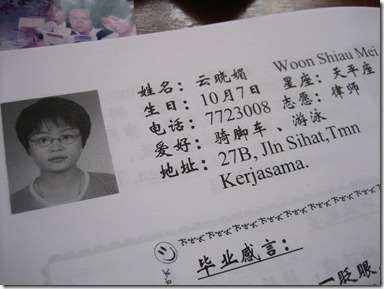 姓名：云晓媚 Woon Shiau Mei
生日：10月7日 星座：天平座
电话：7723008 志愿：律师
爱好：骑脚车、游泳
地址：27B, Jln Sihat,Tmn
Kerjasama.
毕业感言：
一眨眼